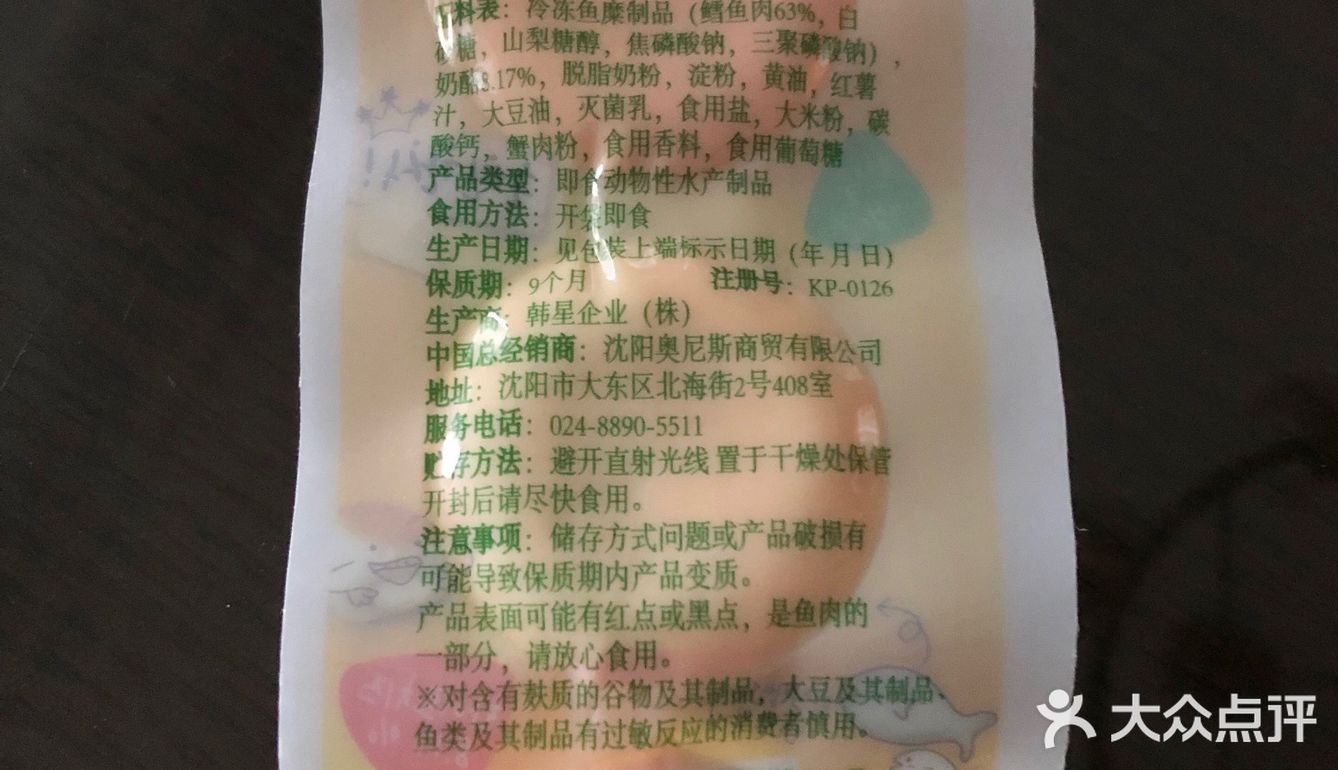 料表：冷冻鱼糜制品（鳕鱼肉63%，白
砂糖，山梨糖醇，焦磷酸钠，三聚磷酸钠），
奶酪8.17%，脱脂奶粉，淀粉，黄油，红薯
汁，大豆油，灭菌乳，食用盐，大米粉，碳
酸钙，蟹肉粉，食用香料，食用葡萄糖
产品类型：即食动物性水产制品
食用方法：开袋即食
生产日期：见包装上端标示日期（年月日）
保质期：9个月 注册号：KP-0126
生产商：韩星企业（株）
中国总经销商：沈阳奥尼斯商贸有限公司
地址：沈阳市大东区北海街2号408室
服务电话：024-8890-5511
贮存方法：避开直射光线 置于干燥处保管
开封后请尽快食用。
注意事项：储存方式问题或产品破损有
可能导致保质期内产品变质。
产品表面可能有红点或黑点，是鱼肉的
一部分，请放心食用。
※对含有麸质的谷物及其制品，大豆及其制品、
鱼类及其制品有过敏反应的消费者慎用。
大众点评